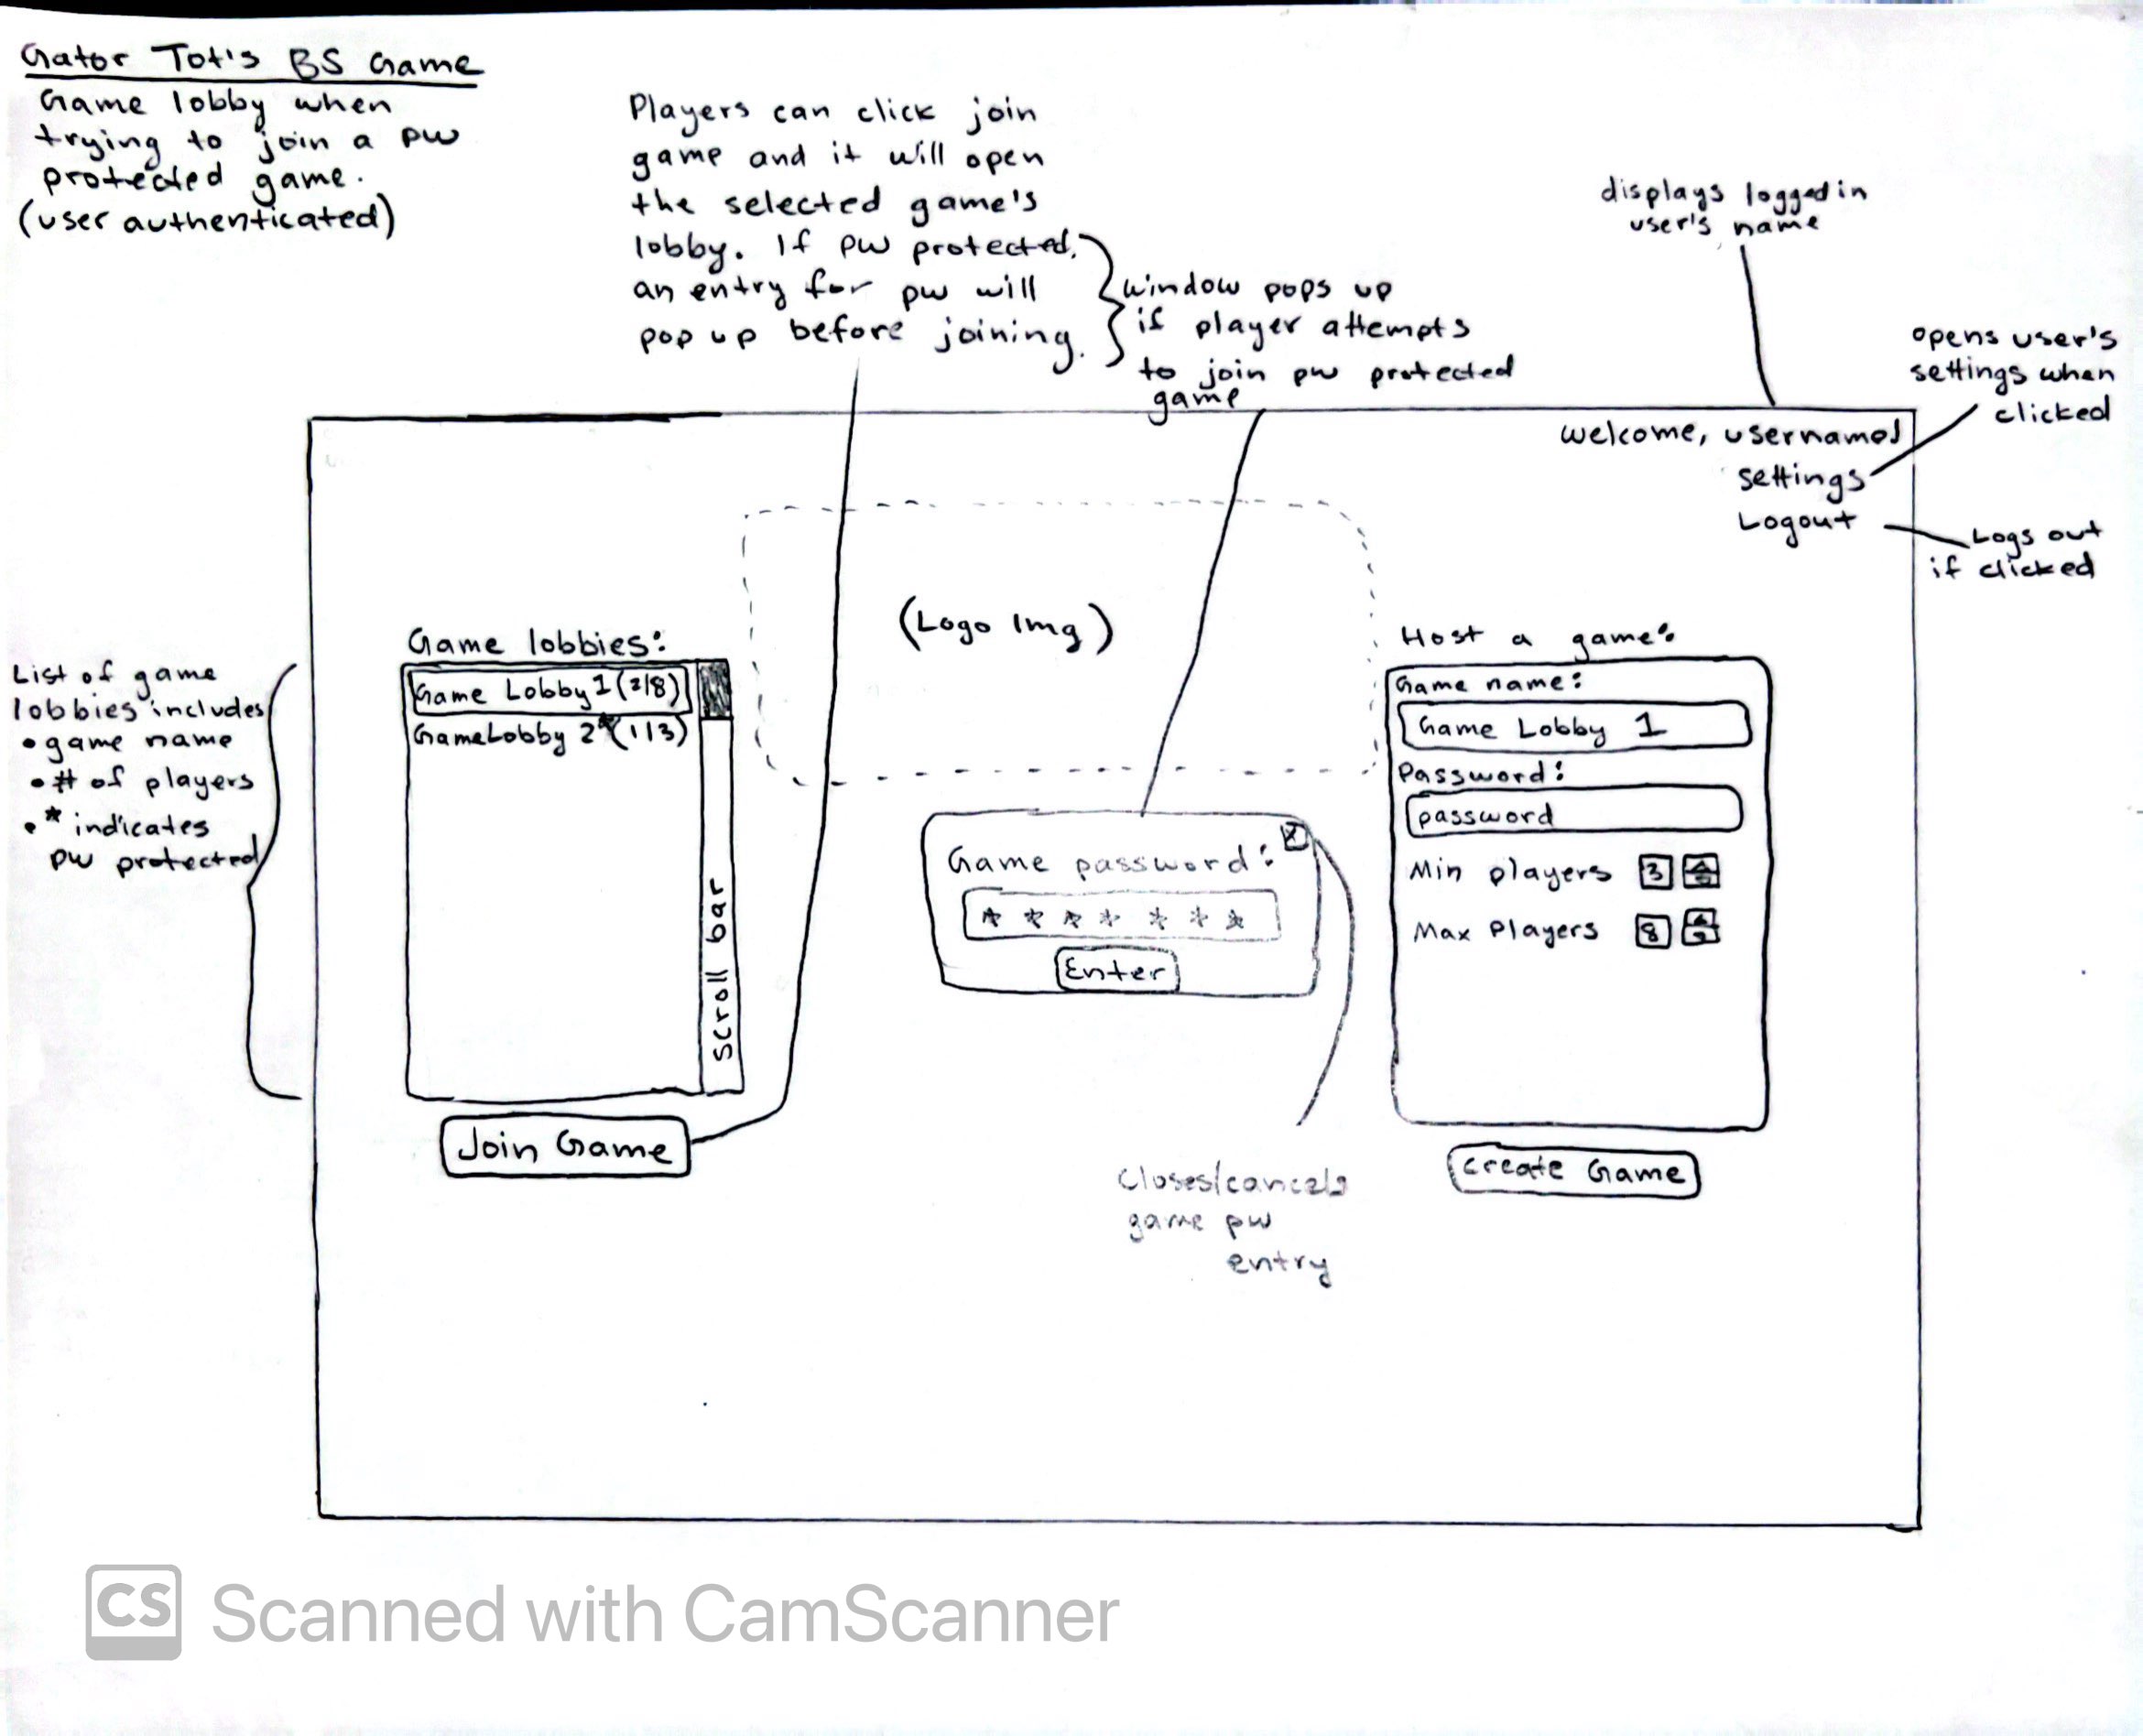 Gator Tot's BS Game
Game lobby when
trying to join a pw
protected game.
(user authenticated)
Players can click join
game and it will open
the selected game's
lobby. If pw protected,
an entry for pw will
pop up before joining.
window pops up
if player attempts
to join pw protected
game
displays logged in
user's name
opens user's
settings when
clicked
welcome, username!
settings
Logout
Logs out
if clicked
(Logo Img)
List of game
lobbies includes
• game name
• # of players
• * indicates
pw protected
Game lobbies:
Game Lobby 1 (2/8)
Game Lobby 2* (1/3)
scroll bar
Join Game
Game password:
X
* * * * * * *
Enter
Closes/cancels
game pw
entry
Host a game:
Game name:
Game Lobby 1
Password:
password
Min players 3
Max Players 8
Create Game
CS Scanned with CamScanner